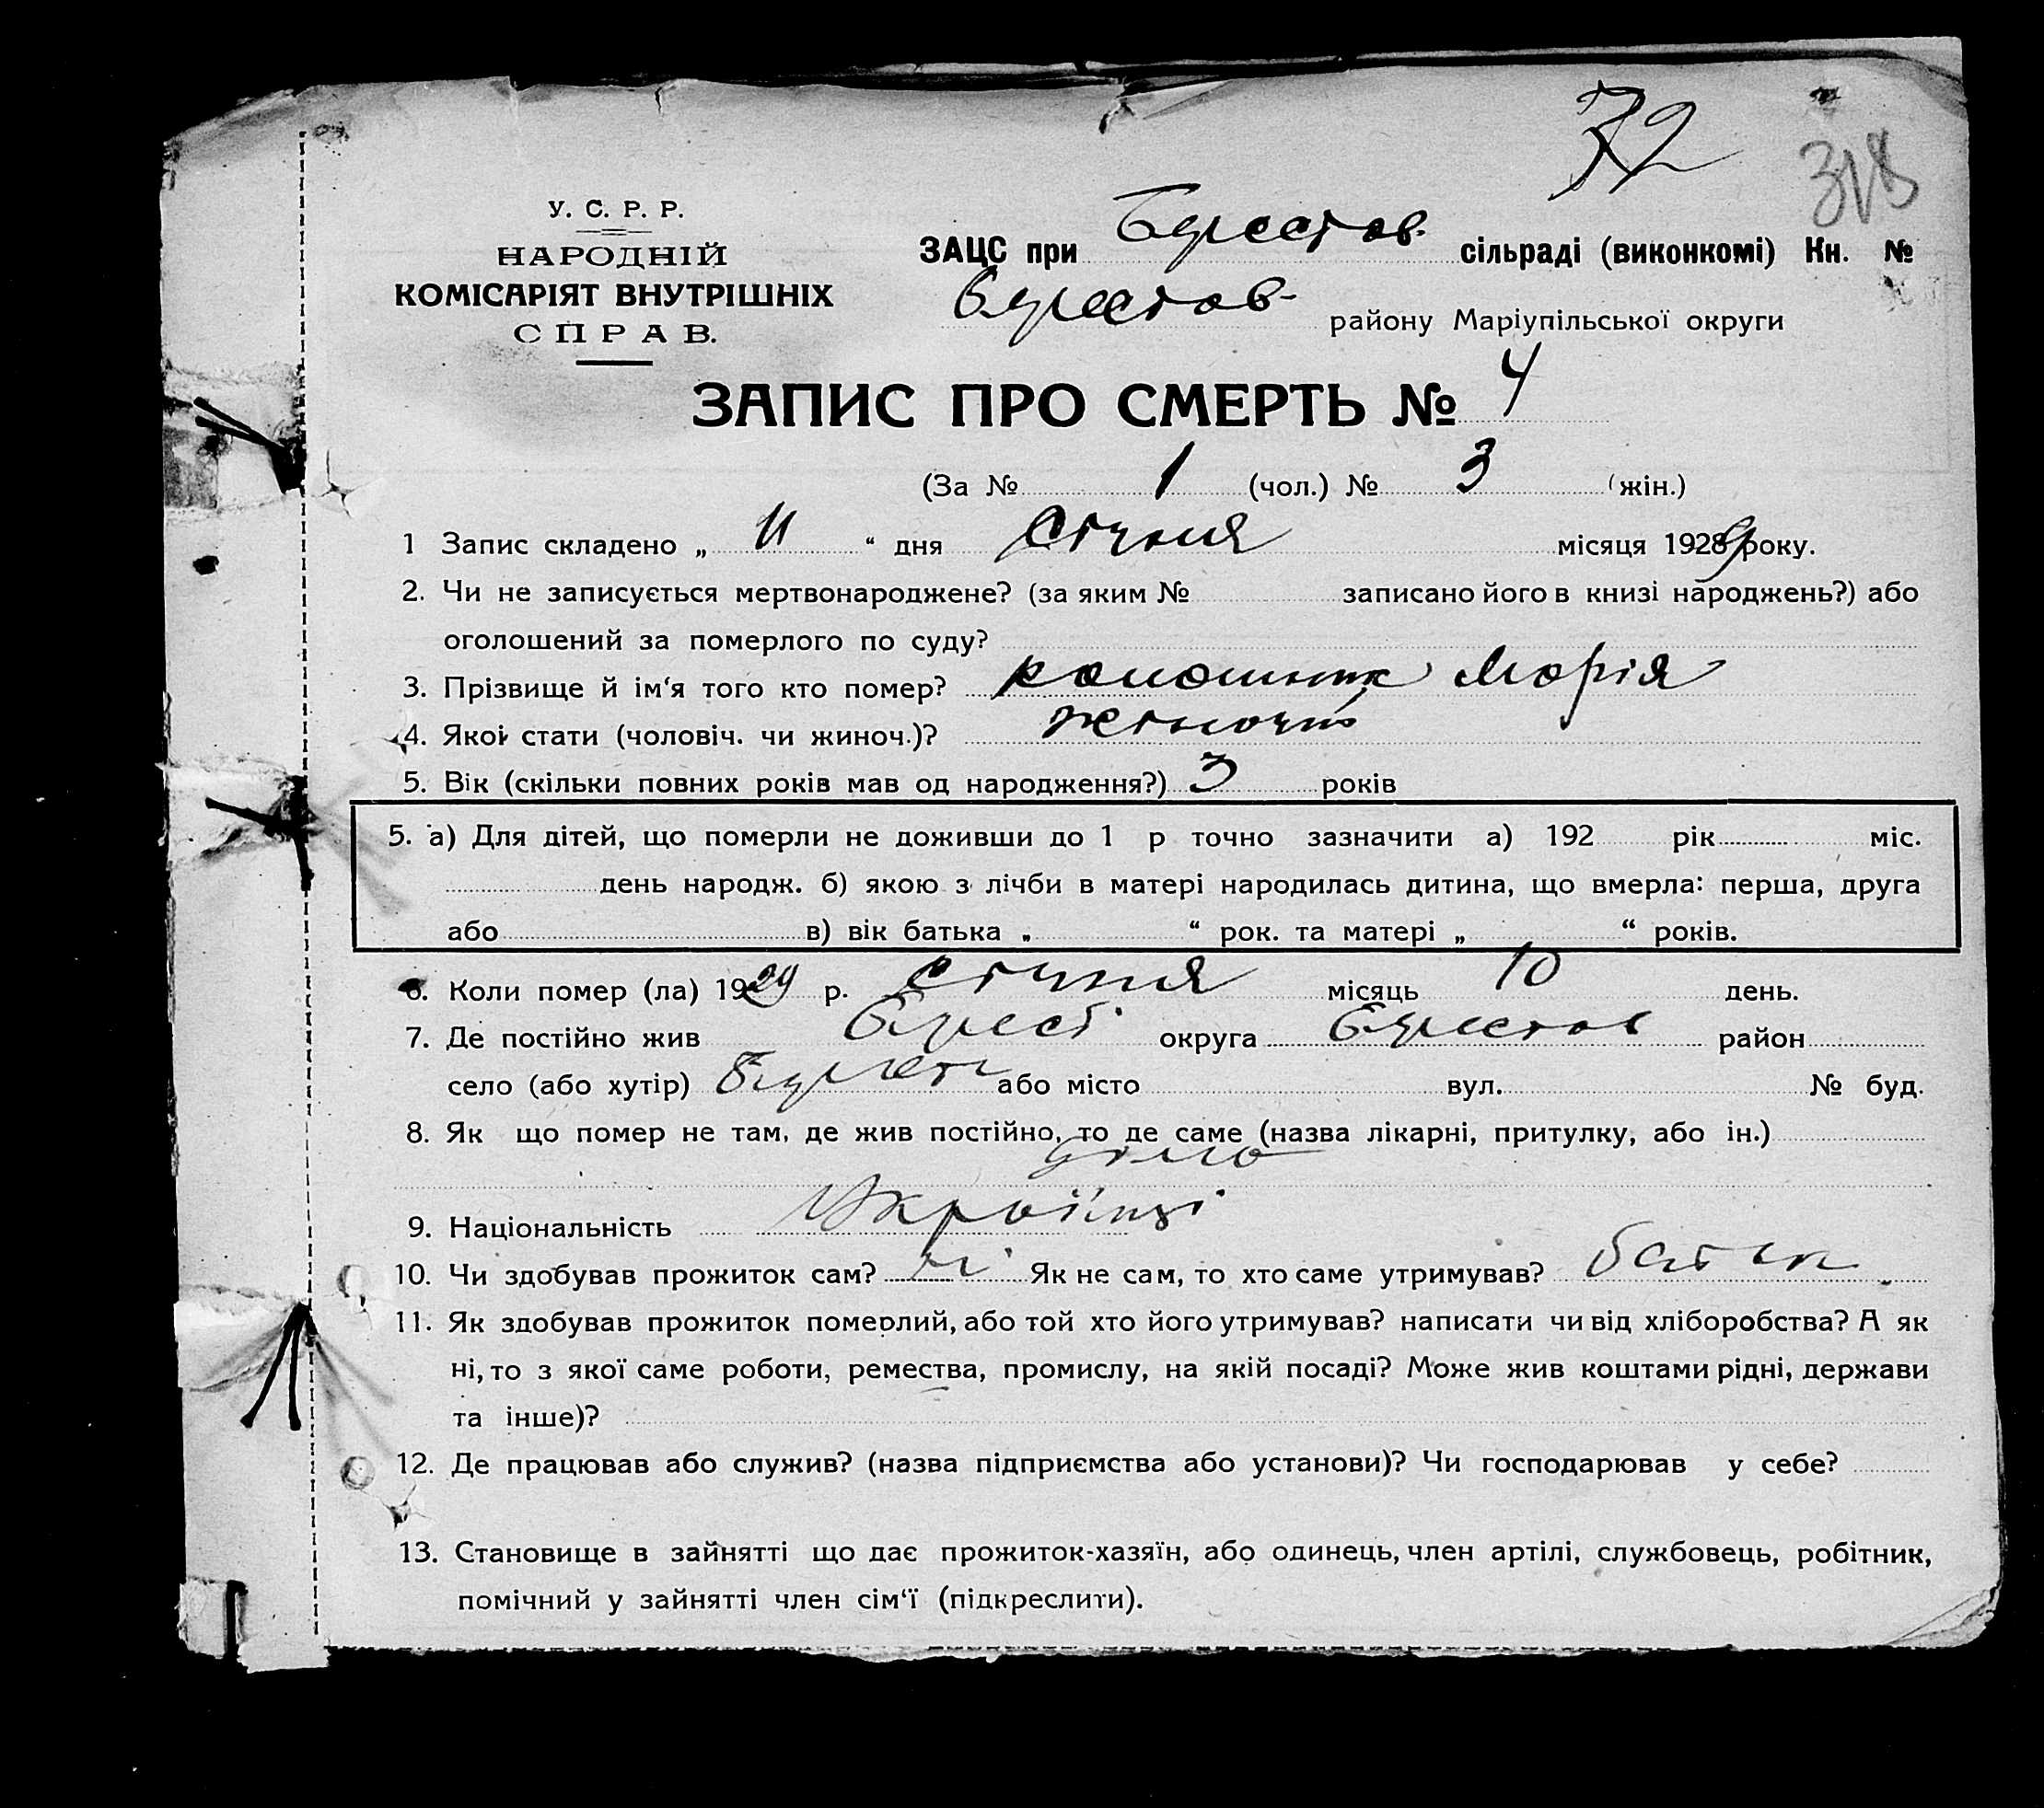 72
318
У. С. Р. Р.
НАРОДНІЙ
КОМІСАРІЯТ ВНУТРІШНІХ
СПРАВ.
ЗАЦС при Берестов. сільраді (виконкомі) Кн. №
Берестов- району Маріупільської округи
ЗАПИС ПРО СМЕРТЬ № 4
(За № 1 (чол.) № 3 (жін.)
1 Запис складено „ 11 “ дня Січня місяця 1929 року.
2. Чи не записується мертвонароджене? (за яким № записано його в книзі народжень?) або
оголошений за померлого по суду?
3. Прізвище й ім‘я того кто помер? Марія
4. Якої стати (чоловіч. чи жиноч.)? жіночої
5. Вік (скільки повних років мав од народження?) 3 років
5. а) Для дітей, що померли не доживши до 1 р точно зазначити а) 192 рік міс.
день народж. б) якою з лічби в матері народилась дитина, що вмерла: перша, друга
або в) вік батька „ “ рок. та матері „ “ років.
6. Коли помер (ла) 1929 р. Січня місяць 10 день.
7. Де постійно жив округа Берестов район
село (або хутір) або місто вул. № буд.
8. Як що помер не там, де жив постійно, то де саме (назва лікарні, притулку, або ін.)
дома
9. Національність Україн
10. Чи здобував прожиток сам? ні Як не сам, то хто саме утримував? батьк
11. Як здобував прожиток померлий, або той хто його утримував? написати чи від хліборобства? А як
ні, то з якої саме роботи, ремества, промислу, на якій посаді? Може жив коштами рідні, держави
та інше)?
12. Де працював або служив? (назва підприємства або установи)? Чи господарював у себе?
13. Становище в зайнятті що дає прожиток-хазяїн, або одинець, член артілі, службовець, робітник,
помічний у зайнятті член сім‘ї (підкреслити).